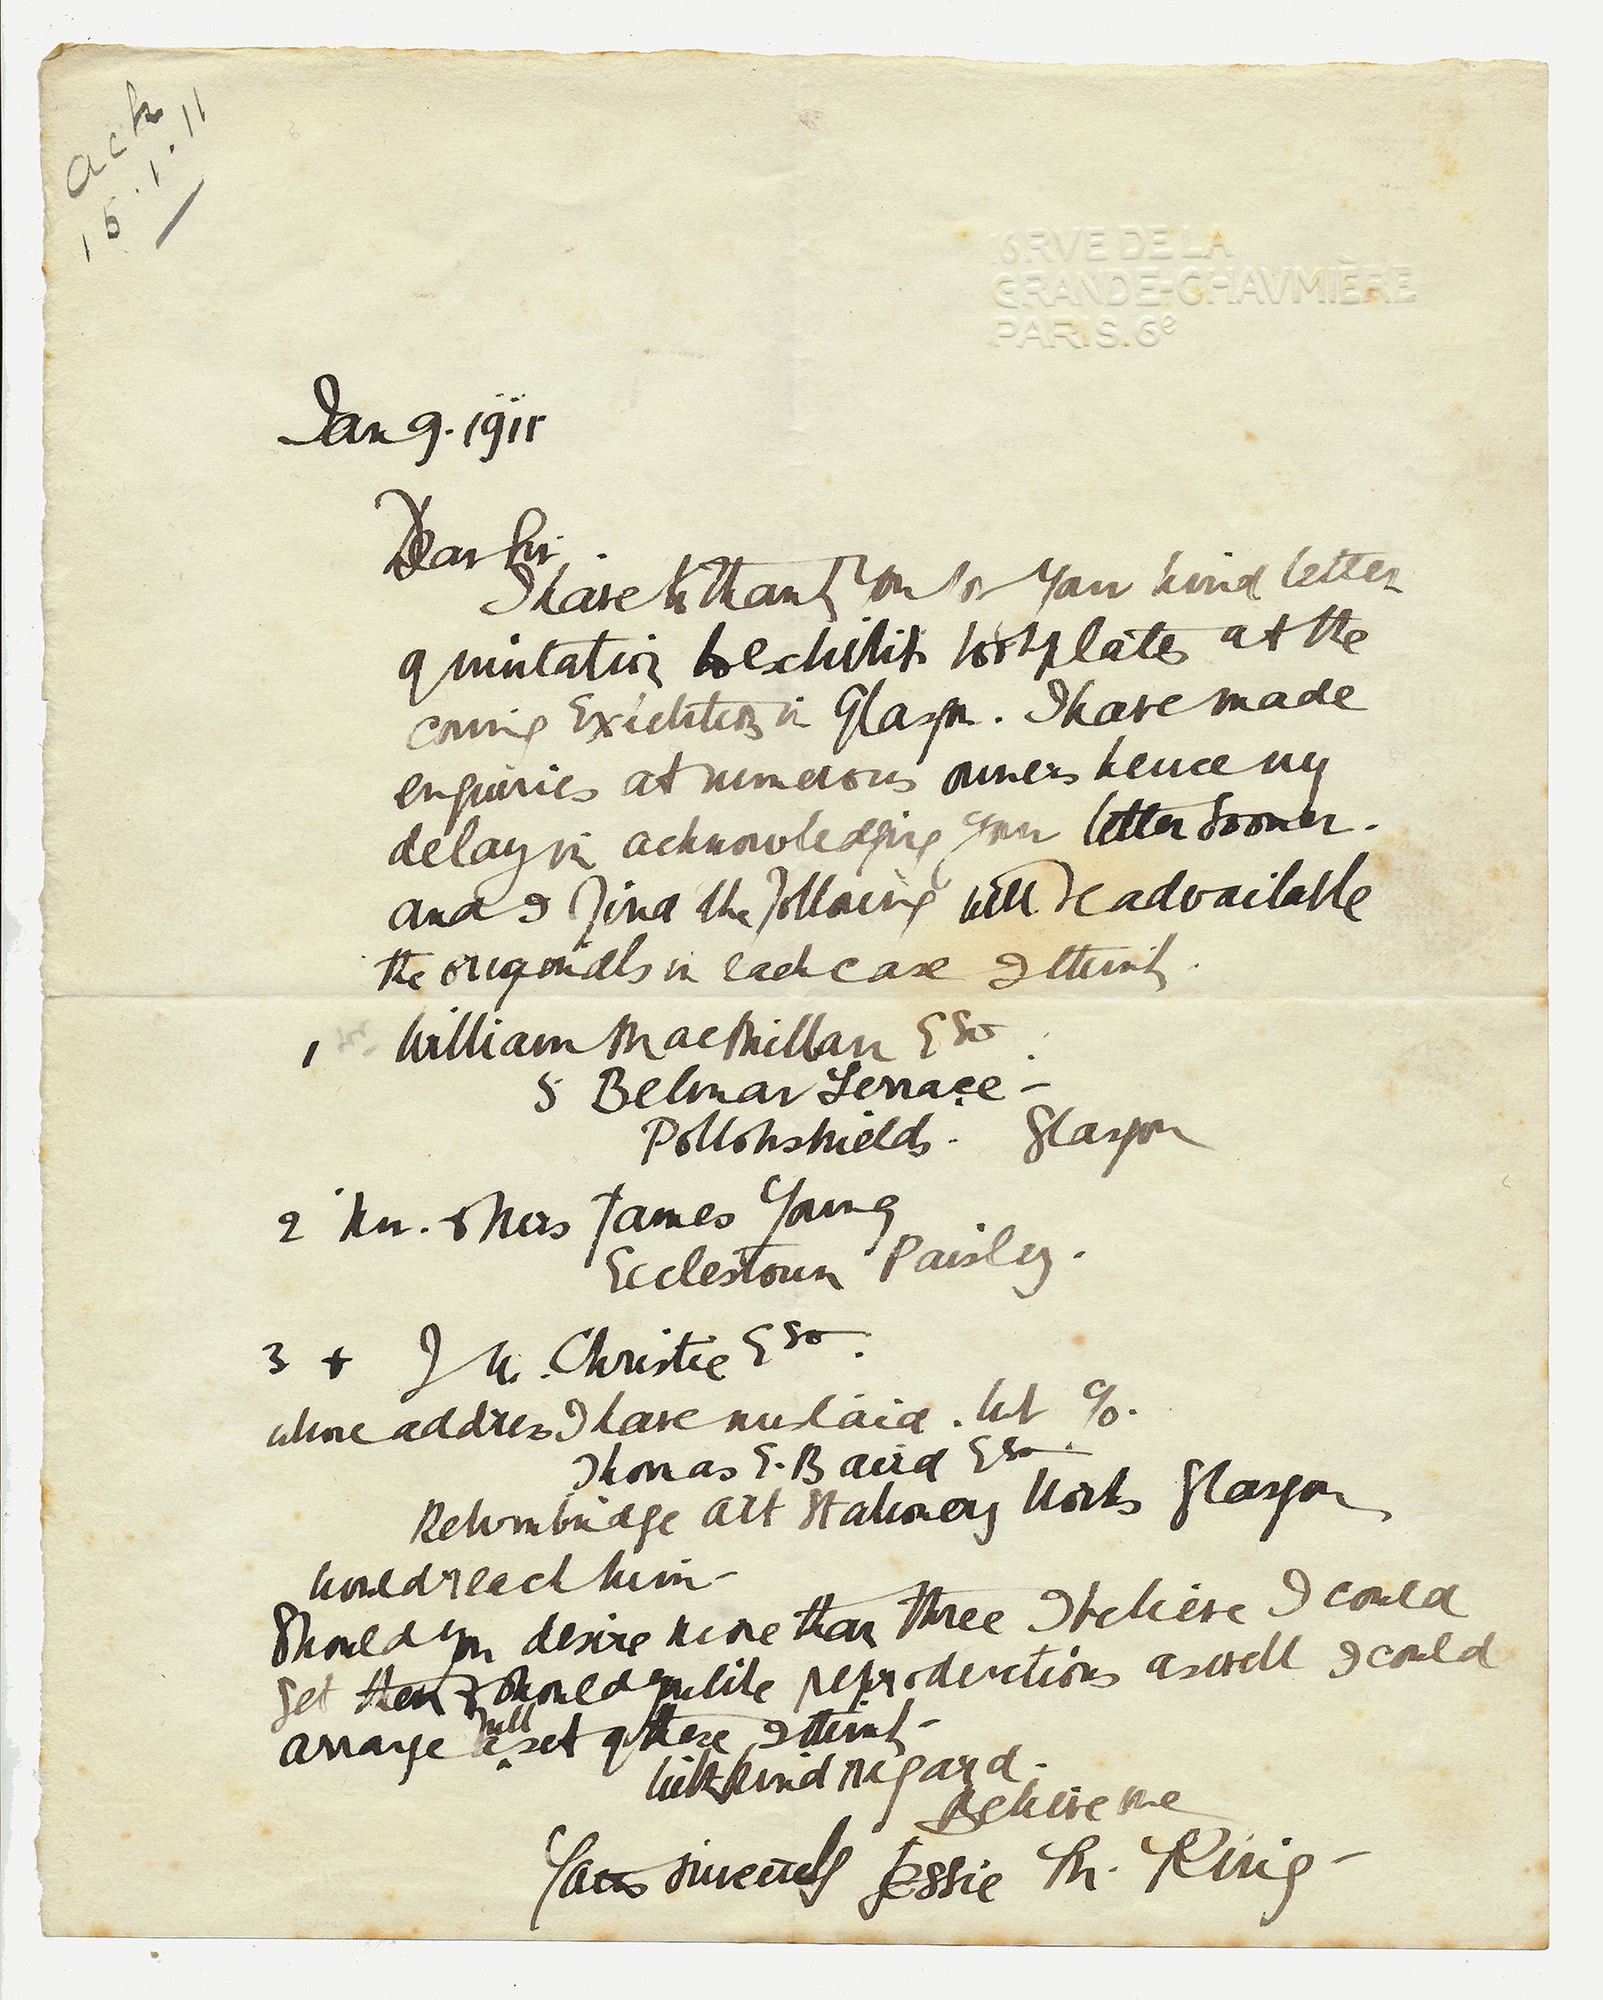 ack
15.1.11
16 RVE DE LA
GRANDE-CHAVMIÈRE
PARIS. 6e
Jan 9. 1911
Dear Sir.
I have to thank you for your kind letter
& invitation to exhibit bookplates at the
coming Exhibition in Glasgow. I have made
enquiries at numerous owners hence my
delay in acknowledging your letter sooner.
and I find the following will be advailable
the originals in each case I think.
1 William MacMillan Esq.
5 Belmar Terrace -
Pollokshields. Glasgow
2 Mr. & Mrs James Young
Ecclestoun Paisley.
3 + J Christie Esq.
whose address I have mislaid. but c/o.
Thomas E. Baird Esq.
Kelvinbridge Art Stationery Works Glasgow
would reach him -
Should you desire more than three I believe I could
get them & should you like reproductions as well I could
arrange a full set of these I think -
With kind regard.
Believe me
Yours sincerely Jessie M. King -